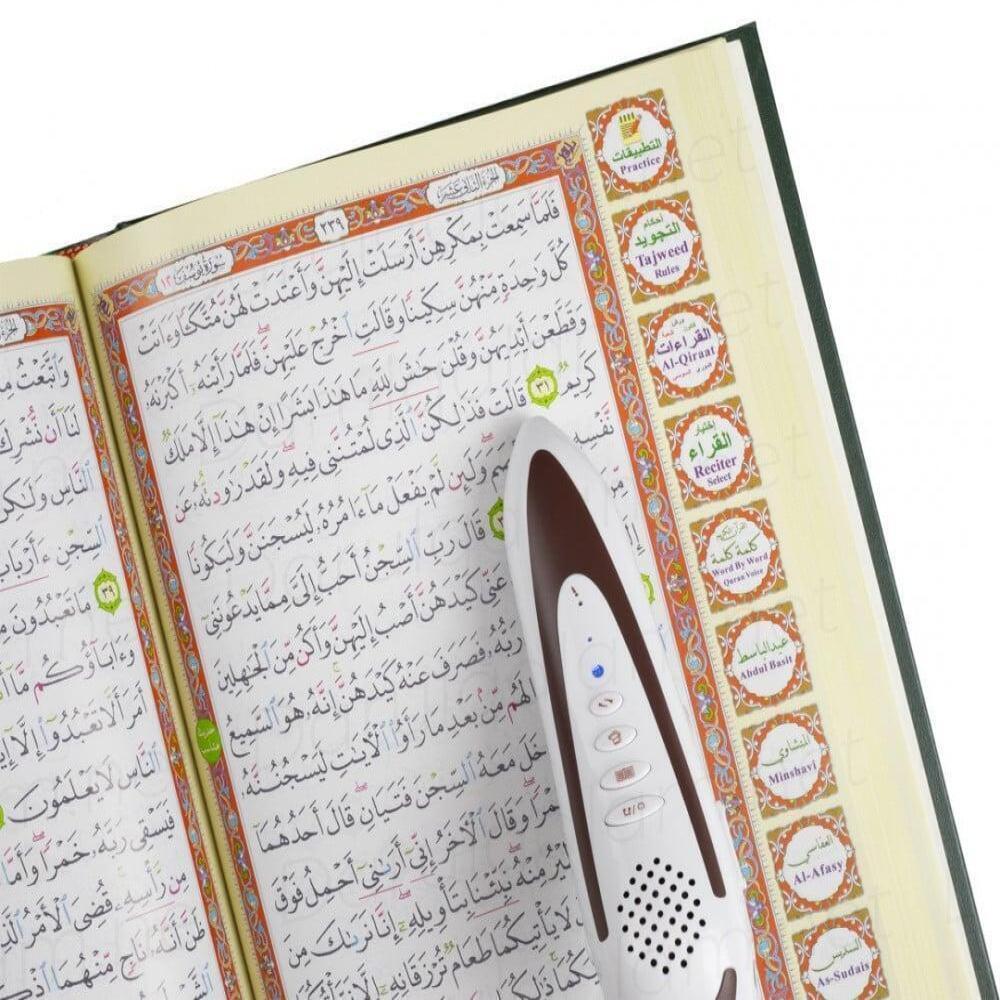 الجزء الثاني عشر
٢٣٩
سورة يوسف ١٢
فَلَمَّا سَمِعَتْ بِمَكْرِهِنَّ أَرْسَلَتْ إِلَيْهِنَّ وَأَعْتَدَتْ لَهُنَّ مُتَّكَـًٔا وَءَاتَتْ
كُلَّ وَٰحِدَةٍ مِّنْهُنَّ سِكِّينًا وَقَالَتِ ٱخْرُجْ عَلَيْهِنَّ فَلَمَّا رَأَيْنَهُۥٓ أَكْبَرْنَهُۥ
وَقَطَّعْنَ أَيْدِيَهُنَّ وَقُلْنَ حَٰشَ لِلَّهِ مَا هَٰذَا بَشَرًا إِنْ هَٰذَآ إِلَّا مَلَكٌ
كَرِيمٌ ٣١ قَالَتْ فَذَٰلِكُنَّ ٱلَّذِى لُمْتُنَّنِى فِيهِ وَلَقَدْ رَٰوَدتُّهُۥ عَن
نَّفْسِهِ وَلَئِن لَّمْ يَفْعَلْ مَآ ءَامُرُهُۥ لَيُسْجَنَنَّ وَلَيَكُونًا
مِّنَ قَالَ رَبِّ ٱلسِّجْنُ أَحَبُّ إِلَىَّ مِمَّا يَدْعُونَنِىٓ
عَنِّى كَيْدَهُنَّ أَصْبُ إِلَيْهِنَّ وَأَكُن مِّنَ ٱلْجَٰهِلِينَ
رَبُّهُۥ فَصَرَفَ عَنْهُ كَيْدَهُنَّ إِنَّهُۥ هُوَ ٱلسَّمِيعُ
لَهُم مِّنۢ بَعْدِ مَا رَأَوُا۟ ٱلْءَايَٰتِ لَيَسْجُنُنَّهُۥ
مَعَهُ ٱلسِّجْنَ فَتَيَانِ قَالَ أَحَدُهُمَآ
وَقَالَ ٱلْءَاخَرُ إِنِّىٓ أَرَىٰنِىٓ أَحْمِلُ فَوْقَ
مِنْهُ نَبِّئْنَا بِتَأْوِيلِهِۦٓ إِنَّا نَرَىٰكَ مِنَ
لَا يَأْتِيكُمَا طَعَامٌ تُرْزَقَانِهِۦٓ إِلَّا
وَٱتَّبَعْتُ
لَنَآ أَن نُّشْرِكَ
ٱلنَّاسِ وَلَٰكِنَّ
ٱلسِّجْنِ
٣٩ مَا تَعْبُدُونَ
وَءَابَآؤُكُم مَّآ
أَمَرَ أَلَّا تَعْبُدُوٓا۟ إِلَّآ
ٱلنَّاسِ لَا يَعْلَمُونَ
فَيَسْقِى رَبَّهُۥ خَمْرًا وَأَمَّا
مِن رَّأْسِهِۦ قُضِىَ ٱلْأَمْرُ
ظَنَّ أَنَّهُۥ نَاجٍ مِّنْهُمَا
التطبيقات
Practice
أحكام
التجويد
Tajweed
Rules
القراءات
Al-Qiraat
إختيار
القراء
Reciter
Select
كلمة كلمة
Word By Word
Quran Voice
عبدالباسط
Abdul Basit
المنشاوي
Minshavi
العفاسي
Al-Afasy
السديس
As-Sudais